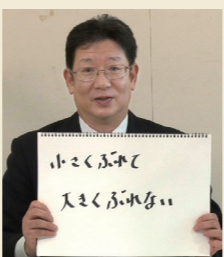 小さくぶれて
大きくぶれない